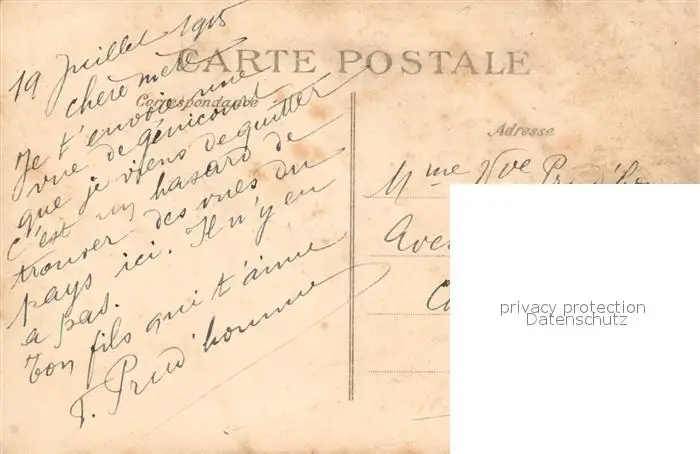 CARTE POSTALE
Correspondance
19 Juillet 1915
chère mère
Je t'envoie une
vue de Génicourt
que je viens de quitter
c'est un hasard de
trouver des vues du
pays ici. Il n'y en
a pas.
Ton fils qui t'aime
Prud'homme
Adresse
Mme Vve
privacy protection
Datenschutz